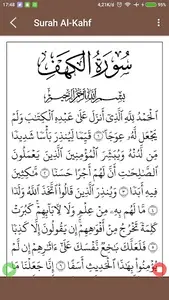 17:48 4,31K/d
Surah Al-Kahf
سُورَةُ الْكَهْفِ
بِسْمِ اللَّهِ الرَّحْمَٰنِ الرَّحِيمِ
الْحَمْدُ لِلَّهِ الَّذِي أَنزَلَ عَلَىٰ عَبْدِهِ الْكِتَابَ وَلَمْ
يَجْعَل لَّهُ عِوَجًا ۝١ قَيِّمًا لِّيُنذِرَ بَأْسًا شَدِيدًا
مِّن لَّدُنْهُ وَيُبَشِّرَ الْمُؤْمِنِينَ الَّذِينَ يَعْمَلُونَ
الصَّالِحَاتِ أَنَّ لَهُمْ أَجْرًا حَسَنًا ۝٢ مَّاكِثِينَ
فِيهِ أَبَدًا ۝٣ وَيُنذِرَ الَّذِينَ قَالُوا اتَّخَذَ اللَّهُ وَلَدًا
۝٤ مَّا لَهُم بِهِ مِنْ عِلْمٍ وَلَا لِآبَائِهِمْ كَبُرَتْ
كَلِمَةً تَخْرُجُ مِنْ أَفْوَاهِهِمْ إِن يَقُولُونَ إِلَّا كَذِبًا
۝٥ فَلَعَلَّكَ بَاخِعٌ نَّفْسَكَ عَلَىٰ آثَارِهِمْ إِن لَّمْ
يُؤْمِنُوا بِهَٰذَا الْحَدِيثِ أَسَفًا ۝٦ إِنَّا جَعَلْنَا مَا